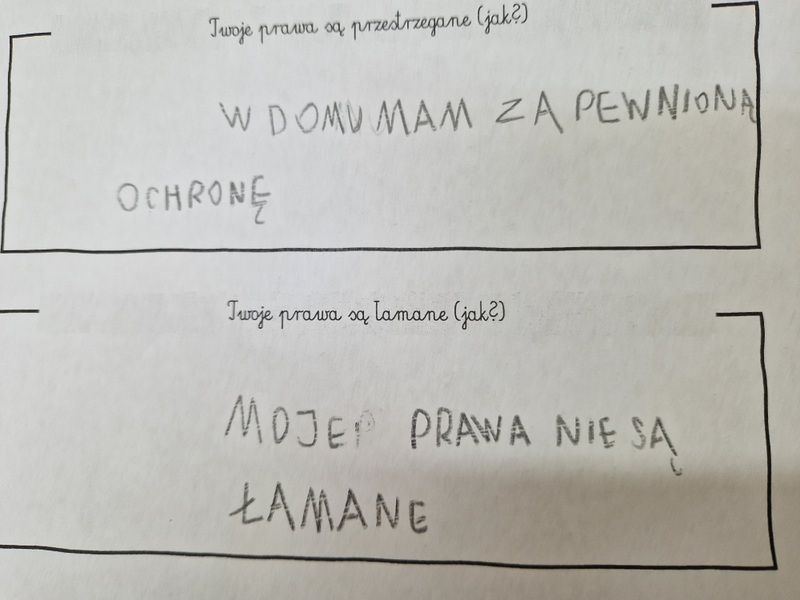 Twoje prawa są przestrzegane (jak?)
W DOMU MAM ZAPEWNIONĄ
OCHRONĘ
Twoje prawa są łamane (jak?)
MOJE PRAWA NIE SĄ
ŁAMANE